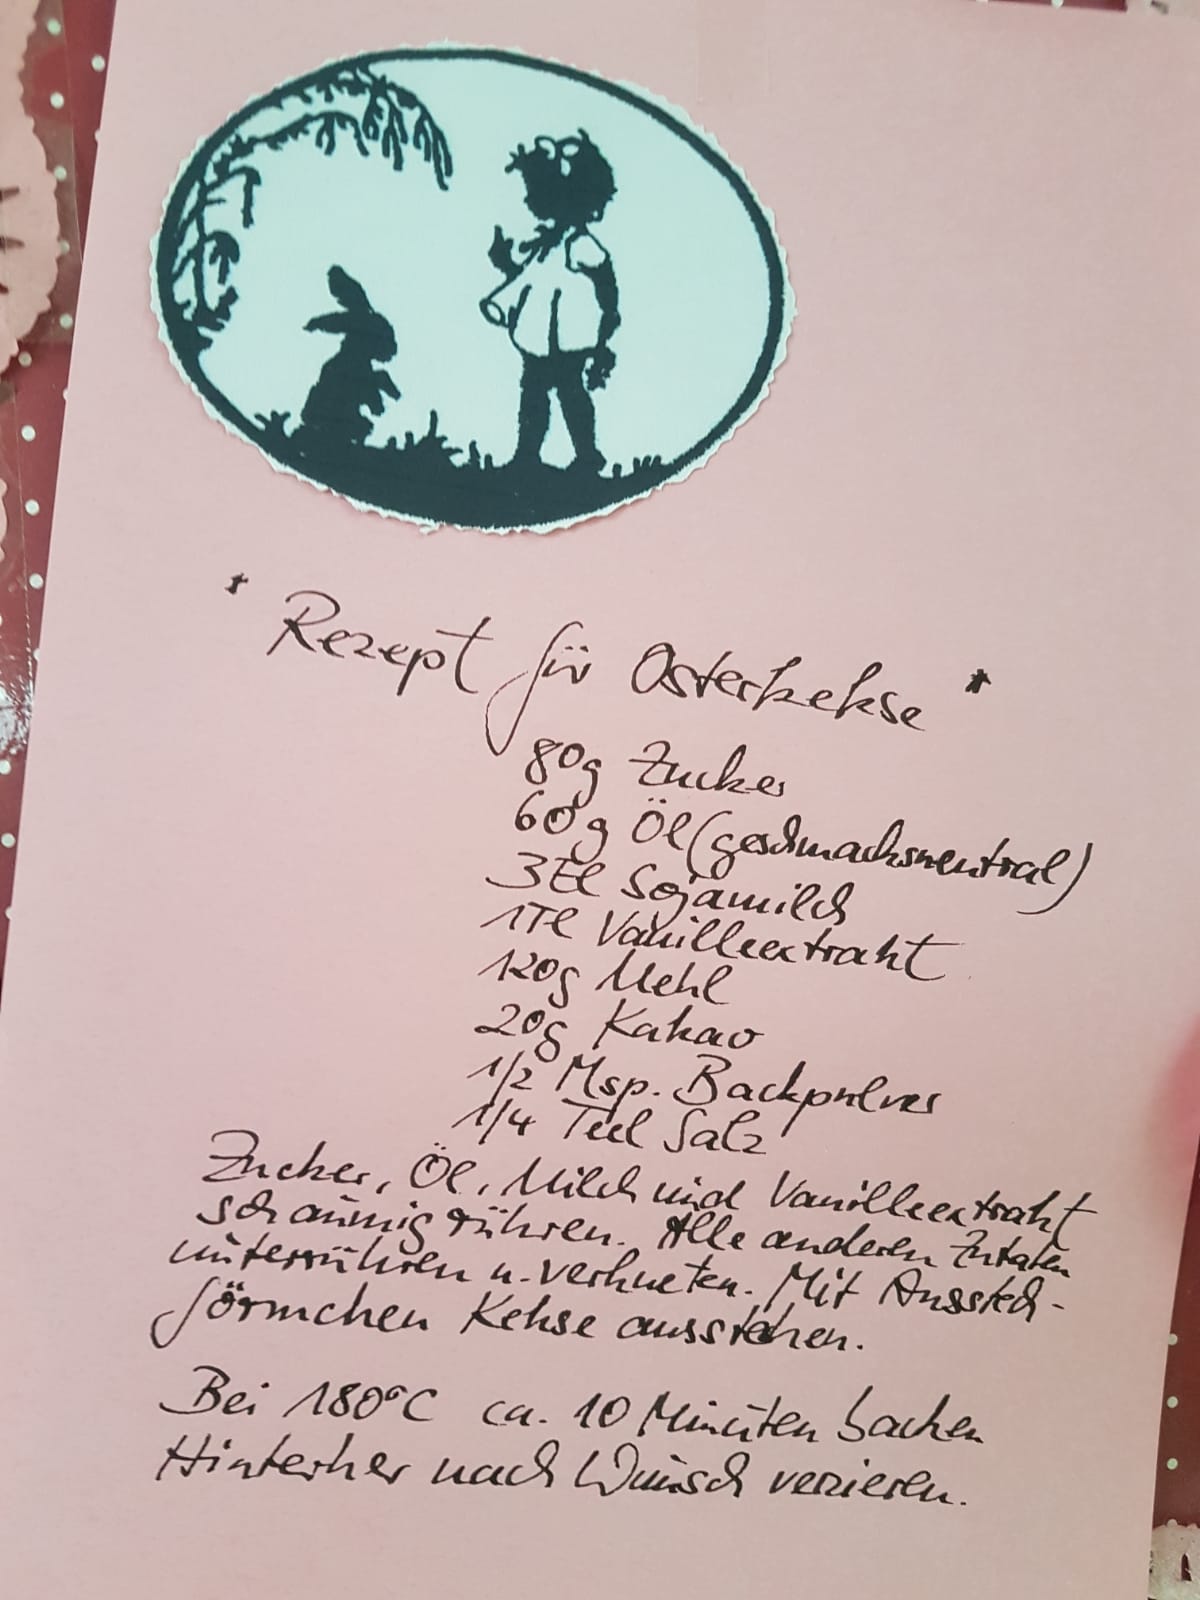 * Rezept für Osterkekse *
80g Zucker
60g Öl (geschmacksneutral)
3El Sojamilch
1Tl Vanilleextrakt
120g Mehl
20g Kakao
1/2 Msp. Backpulver
1/4 Teel Salz
Zucker, Öl, Milch und Vanilleextrakt
schaumig rühren. Alle anderen Zutaten
unterrühren u. verkneten. Mit Ausstech-
förmchen Kekse ausstechen.
Bei 180°C ca. 10 Minuten backen
Hinterher nach Wunsch verzieren.